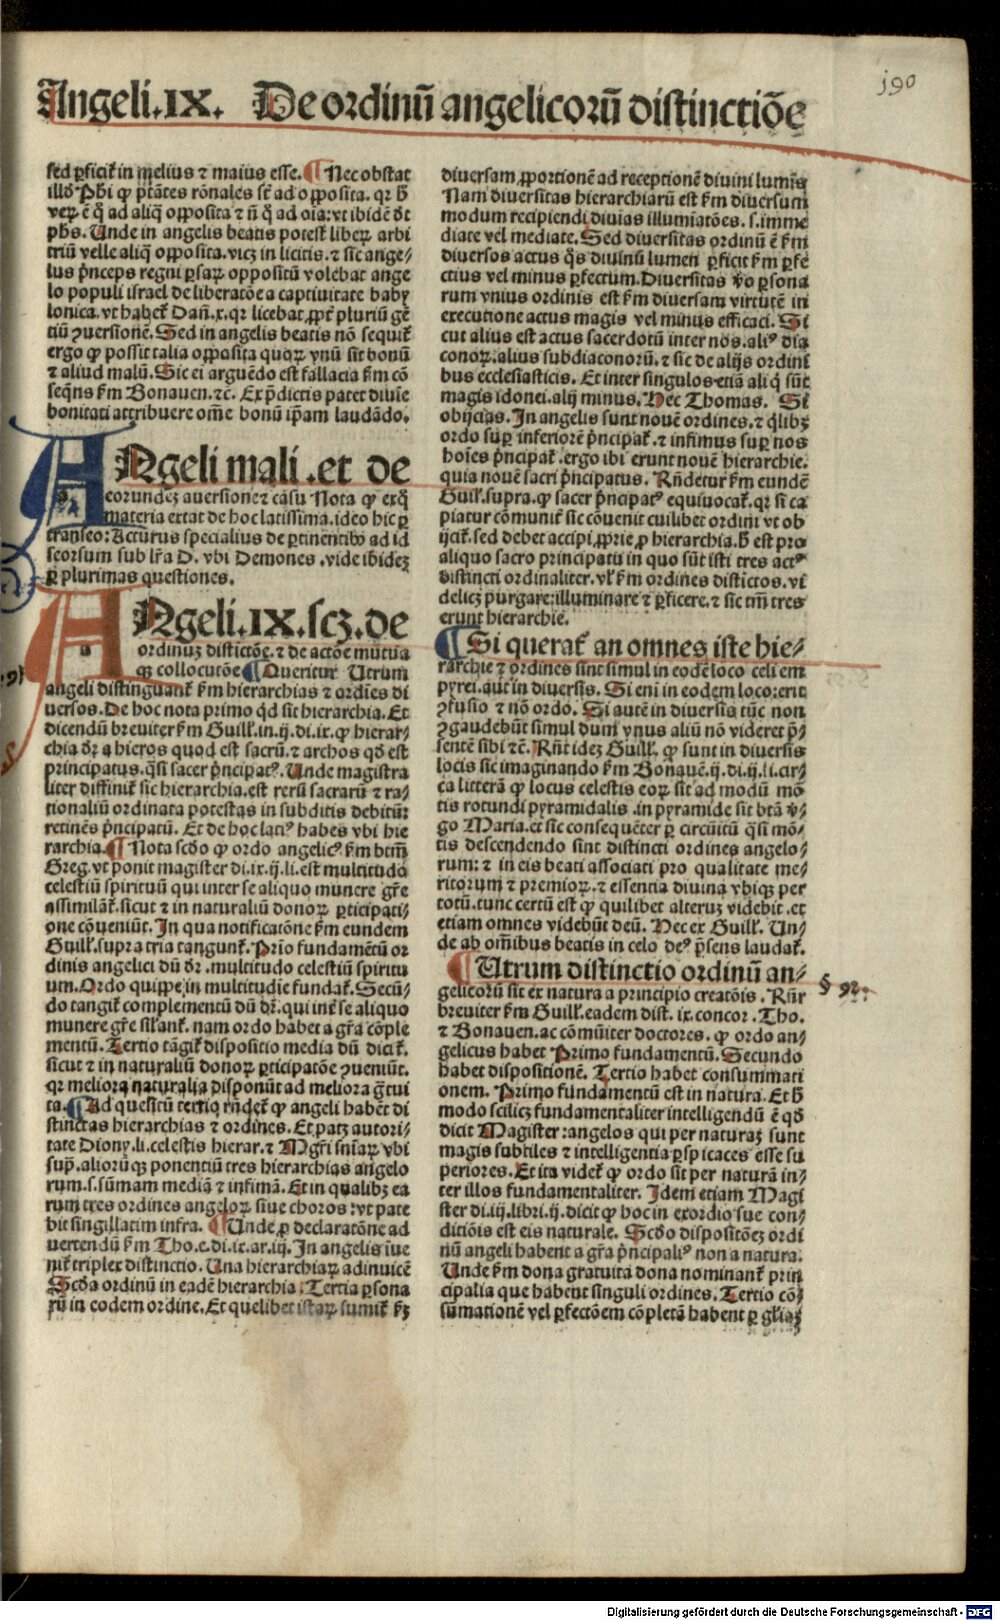 190
Angeli.IX. De ordinū angelicorū distinctiōe
sed ꝑficit̄ in melius ⁊ maius esse. ¶ Nec obstat
illđ Ph̄i ꝙ ptātes rōnales st̄ ad opposita. qꝛ ħ
veꝝ ē q̄ ad aliq̄ opposita ⁊ ū q̄ ad oīa: vt ibidē dt̄
ph̄s. Unde in angelis beatis potest libeꝝ arbi
triū velle aliq̄ opposita. vicz in licitis. ⁊ sic ange⸗
lus p̄nceps regni ꝑsaꝝ oppositū volebat ange
lo populi israel de liberatōe a captiuitate baby
lonica. vt habet̄ Dan̄.x. qꝛ licebat ꝓpt̄ pluriū gē
tiū ꝯuersionē. Sed in angelis beatis nō sequit̄
ergo ꝙ possit talia opposita quoꝝ vnū sit bonū
⁊ aliud malū. Sic ei arguēdo est fallacia ẜm cō
seq̄ns ẜm Bonauen. ⁊c. Ex p̄dictis patet diuīe
bonitati attribuere om̄e bonū ip̄am laudādo.
ANgeli mali .et de
eorundeꝫ auersione ⁊ casu Nota ꝙ exq̄
materia extat de hoc latissima. ideo hic ꝑ
transeo: Acturus specialius de ꝑtinentibꝰ ad id
seorsum sub lr̄a D. vbi Demones. vide ibideꝫ
ꝑ plurimas questiones.
ANgeli.IX.scꝫ.de
ordinuꝫ distictōe. ⁊ de actōe mutua
qꝫ collocutōe ¶ Queritur Utrum
angeli distinguant̄ ẜm hierarchias ⁊ ordīes di
uersos. De hoc nota primo qd sit hierarchia. Et
dicendū breuiter ẜm Guill̄.in.ij.di.ix. ꝙ hierar⸗
chia dr̄ a hieros quod est sacrū. ⁊ archos qđ est
principatus. q̄si sacer p̄ncipatꝰ. Unde magistra
liter diffinit̄ sic hierarchia. est rerū sacrarū ⁊ ra⸗
tionaliū ordinata potestas in subditis debitū:
retinēs p̄ncipatū. Et de hoc latiꝰ habes vbi hie
rarchia. ¶ Nota scđo ꝙ ordo angelicꝰ ẜm btm̄
Greg. vt ponit magister di.ix.ij.li.est multitudo
celestiū spirituū qui inter se aliquo munere gr̄e
assimilāt̄. sicut ⁊ in naturaliū donoꝝ ꝑticipati⸗
one cōueniūt. In qua notificatōne ẜm eundem
Guill̄. supra tria tangunt̄. Prīo fundamētū or
dinis angelici dū dr̄ .multitudo celestiū spiritu
um. Ordo quippe in multitudīe fundat̄. Secū⸗
do tangit̄ complementū dū dr̄. qui int̄ se aliquo
munere gr̄e sīlant̄. nam ordo habet a gr̄a cōple
mentū. Tertio tāgit̄ dispositio media dū dicit̄.
sicut ⁊ in naturaliū donoꝝ ꝑticipatōe ꝯueniūt.
qꝛ meliora naturalia disponūt ad meliora g̅tui
ta. ¶ Ad quesitū tertiū rn̄det̄ ꝙ angeli habēt di
stinctas hierarchias ⁊ ordines. Et patꝫ autori⸗
tate Diony.li.celestis hierar. ⁊ Mgr̄i sn̄iaꝝ vbi
sup̄. aliorū qꝫ ponentiū tres hierarchias angelo
rum.s.sūmam mediā ⁊ infimā. Et in qualibꝫ ea
rum tres ordines angeloꝝ siue choros: vt pate
bit singillatim infra. ¶ Unde ꝑ declaratōne ad
uertendū ẜm Tho.e.di.ix.ar.iij. In angelis īue
nit̄ triplex distinctio. Una hierarchiaꝝ adinuicē
Scđa ordinū in eadē hierarchia: Tertia ꝑsona
rū in eodem ordine. Et quelibet istaꝝ sumit̄ ẜꝫ
diuersam ꝓportionē ad receptionē diuini lumīs
Nam diuersitas hierarchiarū est ẜm diuersum
modum recipiendi diuīas illumiatōes. s. imme
diate vel mediate. Sed diuersitas ordinū ē ẜm
diuersos actus q̄s diuinū lumen ꝑficit ẜm ꝑfe
ctius vel minus ꝑfectum. Diuersitas v̄o ꝑsona
rum vnius ordinis est ẜm diuersam virtutē in
executione actus magis vel minus efficaci. Si
cut alius est actus sacerdotū inter nos. aliꝰ dia
conoꝝ. alius subdiaconorū. ⁊ sic de alijs ordini
bus ecclesiasticis. Et inter singulos etiā ali q̄ sūt
magis idonei. alij minus. Hec Thomas. Si
obijcias. In angelis sunt nouē ordines. ⁊ q̄libꝫ
ordo suꝑ inferiorē p̄ncipat̄. ⁊ infimus suꝑ nos
hoīes p̄ncipat̄. ergo ibi erunt nouē hierarchie.
quia nouē sacri p̄ncipatus. Rn̄detur ẜm eundē
Guill̄. supra. ꝙ sacer p̄ncipatꝰ equiuocat̄. qꝛ si ca
piatur cōmunit̄ sic cōuenit cuilibet ordini vt ob
ijcit̄. sed debet accipi ꝓprie ꝓ hierarchia. ħ est pro
aliquo sacro principatu in quo sūt isti tres actꝰ
distincti ordinaliter. vl̄ ẜm ordines distictos. vi
delicꝫ purgare: illuminare ⁊ ꝑficere. ⁊ sic tm̄ tres
erunt hierarchie.
¶ Si querat̄ an omnes iste hie⸗
rarchie ⁊ ordines sint simul in eodē loco celi em
pyrei. aut in diuersis. Si eni in eodem loco: erit
ꝯfusio ⁊ nō ordo. Si autē in diuersis tūc non
ꝯgaudebūt simul dum vnus aliū nō videret p̄⸗
sentē sibi ⁊c̄. Rn̄t ideꝫ Guill̄. ꝙ sunt in diuersis
locis sic imaginando ẜm Bonauē.ij.di.ij.li.cir⸗
ca litterā ꝙ locus celestis eoꝝ sit ad modū mō
tis rotundi pyramidalis. in pyramide sit btā v̄⸗
go Maria. et sic consequēter ꝑ circuitū q̄si mō⸗
tis descendendo sint distincti ordines angelo⸗
rum: ⁊ in eis beati associati pro qualitate me⸗
ritorum ⁊ premioꝝ. ⁊ essentia diuina vbiqꝫ per
totū. tunc certū est ꝙ quilibet alteruꝫ videbit. et
etiam omnes videbūt deū. Hec ex Guill̄. Un⸗
de ab om̄ibus beatis in celo deꝰ p̄sens laudat̄.
¶ Utrum distinctio ordinū an⸗
gelicorū sit ex natura a principio creatōis. Rn̄r
breuiter ẜm Guill̄. eadem dist. ix. concor. Tho.
⁊ Bonauen. ac cōmūiter doctores. ꝙ ordo an⸗
gelicus habet Primo fundamentū. Secundo
habet dispositionē. Tertio habet consummati
onem. Primo fundamentū est in natura. Et ħ
modo scilicꝫ fundamentaliter intelligendū ē qđ
dicit Magister: angelos qui per naturaꝫ sunt
magis subtiles ⁊ intelligentia ꝑspicaces esse su
periores. Et ita videt̄ ꝙ ordo sit per naturā in⸗
ter illos fundamentaliter. Idem etiam Magi
ster di.iij.libri.ij.dicit ꝙ hoc in exordio sue con⸗
ditiōis est eis naturale. Scđo dispositōeꝫ ordi
nū angeli habent a gr̄a p̄ncipaliꝰ non a natura.
Unde ẜm dona gratuita dona nominant̄ prin
cipalia que habent singuli ordines. Tertio cō⸗
sūmationē vel ꝑfectōem cōpletā habent ꝑ gl̄iaꝫ
Digitalisierung gefördert durch die Deutsche Forschungsgemeinschaft - DFG